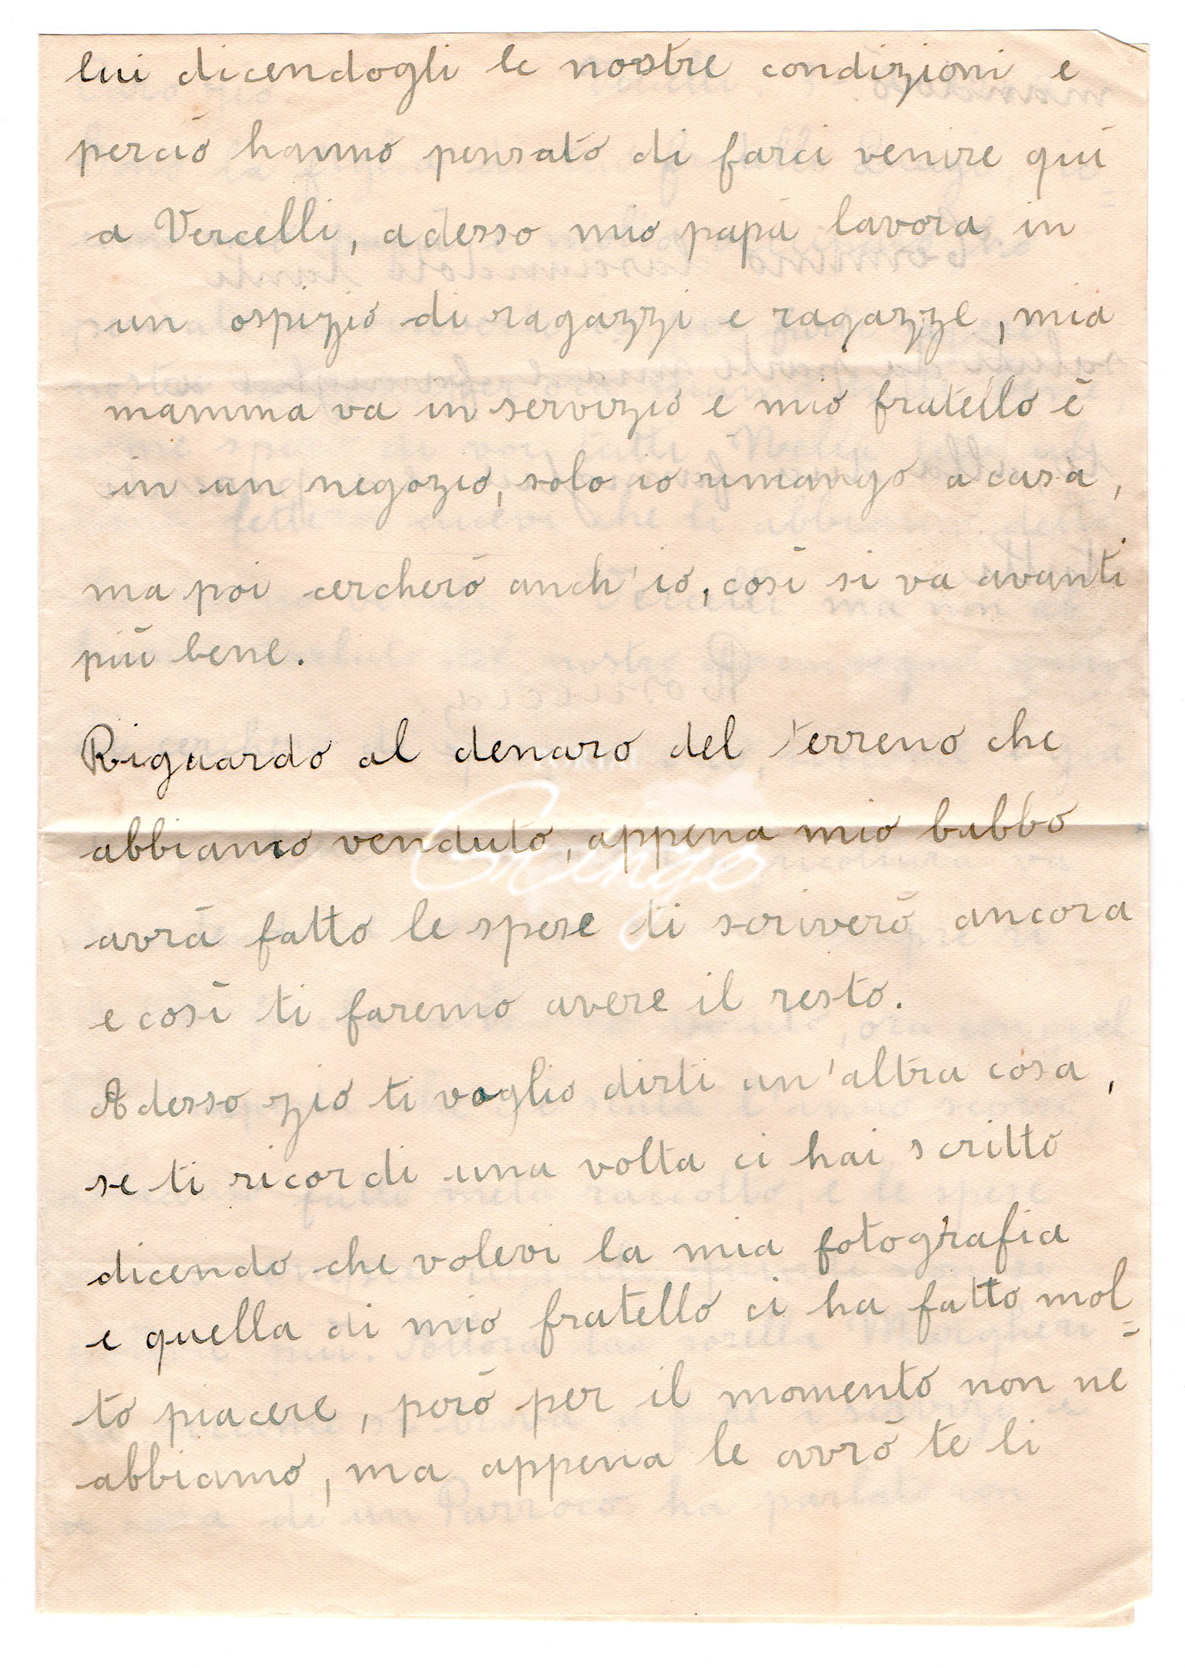 lui dicendogli le nostre condizioni e
perciò hanno pensato di farci venire quì
a Vercelli, adesso mio papà lavora in
un ospizio di ragazzi e ragazze, mia
mamma va in servizio e mio fratello è
in un negozio, solo io rimango a casa,
ma poi cercherò anch'io, così si va avanti
più bene.
Riguardo al denaro del terreno che
abbiamo venduto, appena mio babbo
avrà fatto le spese ti scriverò ancora
e così ti faremo avere il resto.
Adesso zio ti voglio dirti un'altra cosa,
se ti ricordi una volta ci hai scritto
dicendo che volevi la mia fotografia
e quella di mio fratello ci ha fatto mol=
to piacere, però per il momento non ne
abbiamo, ma appena le avrò te li